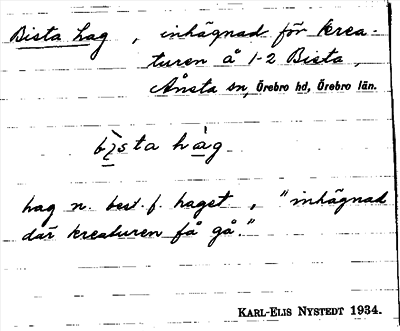 Bista hag, inhägnad för krea-
turen å 1-2 Bista,
Ånsta sn, Örebro hd, Örebro län.
bìsta hàg
hag n. best. f. haget, "inhägnad
där kreaturen få gå."
KARL-ELIS NYSTEDT 1934.